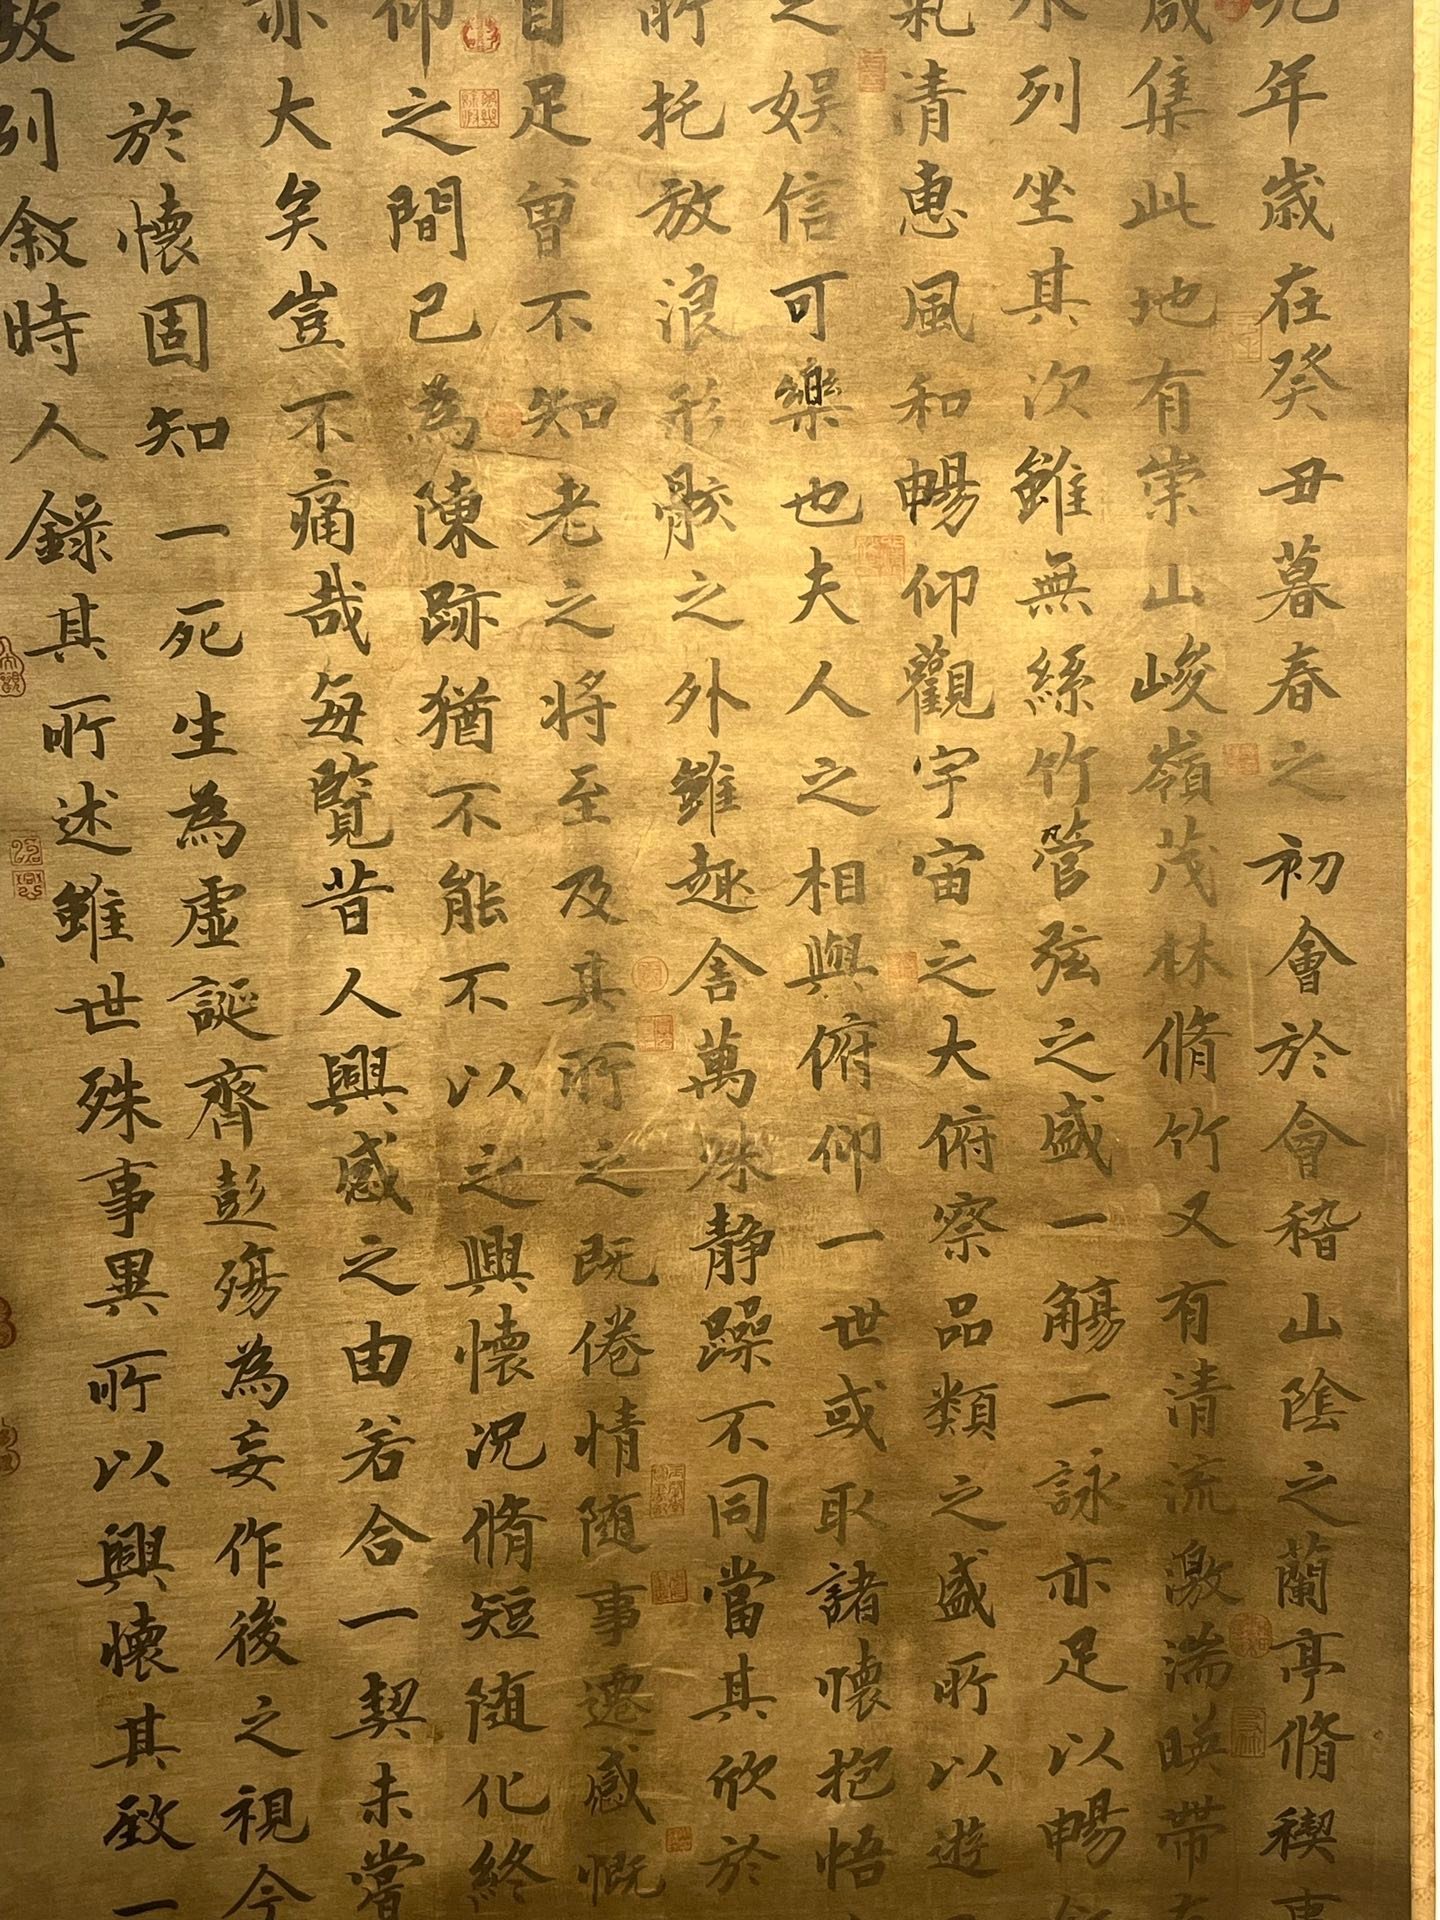 九年歲在癸丑暮春之初會於會稽山陰之蘭亭脩禊事
咸集此地有崇山峻嶺茂林脩竹又有清流激湍暎帶
水列坐其次雖無絲竹管弦之盛一觴一詠亦足以暢
氣清惠風和暢仰觀宇宙之大俯察品類之盛所以遊
之娛信可樂也夫人之相與俯仰一世或取諸懷抱悟
所托放浪形骸之外雖趣舍萬殊静躁不同當其欣於
自足曾不知老之將至及其所之既倦情随事遷感慨
仰之間已為陳跡猶不能不以之興懷況脩短随化終
亦大矣豈不痛哉每覽昔人興感之由若合一契未嘗
之於懷固知一死生為虛誕齊彭殤為妄作後之視今
故列敘時人錄其所述雖世殊事異所以興懷其致一